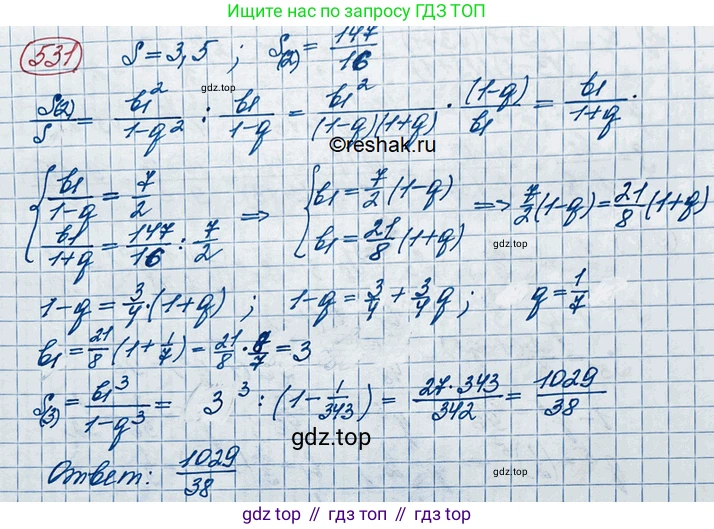 Ищите нас по запросу ГДЗ ТОП
531 S = 3,5 ; S(2) = 147/16
gdz.top
S(2)/S = b1²/(1-q²) : b1/(1-q) = b1²/((1-q)(1+q)) · (1-q)/b1 = b1/(1+q) .
©reshak.ru
{ b1/(1-q) = 7/2 ; b1/(1+q) = 147/16 : 7/2 ⇒ { b1 = 7/2 (1-q) ; b1 = 21/8 (1+q) ⇒ 7/2 (1-q) = 21/8 (1+q)
gdz.top
1-q = 3/4 · (1+q) ; 1-q = 3/4 + 3/4 q ; q = 1/7
b1 = 21/8 (1 + 1/7) = 21/8 · 8/7 = 3
S(3) = b1³/(1-q³) = 3³ : (1 - 1/343) = 27·343/342 = 1029/38
gdz.top
Ответ: 1029/38
gdz.top
gdz top // гдз топ // gdz top // гдз топ